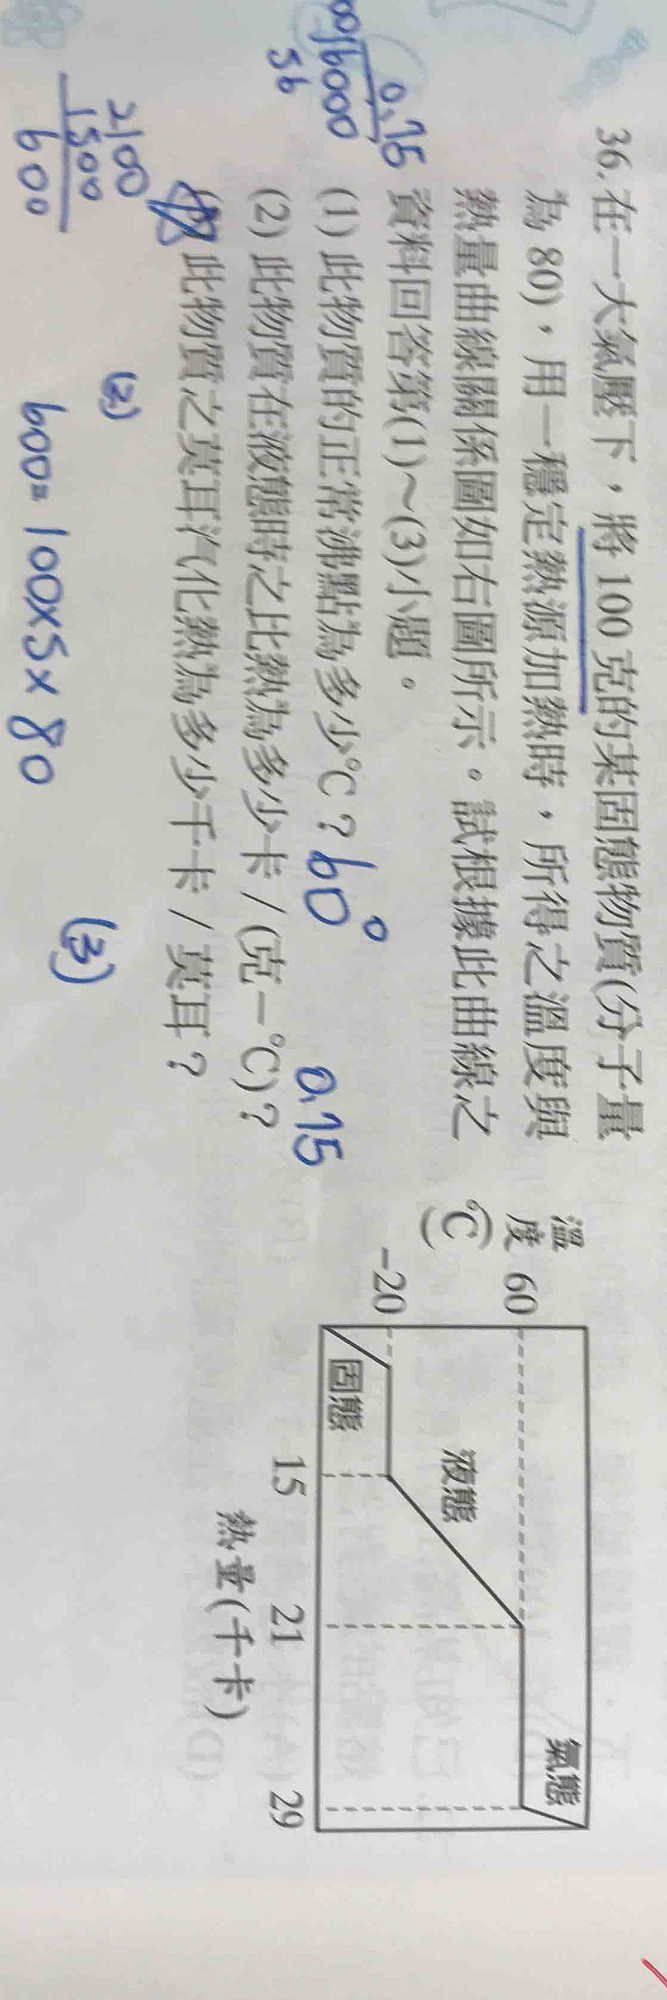 36. 在一大氣壓下，將 100 克的某固態物質(分子量
為 80)，用一穩定熱源加熱時，所得之溫度與
熱量曲線關係圖如右圖所示。試根據此曲線之
資料回答第(1)～(3)小題。
(1) 此物質的正常沸點為多少℃？ 60°
(2) 此物質在液態時之比熱為多少卡／(克－℃)？ 0.75
此物質之莫耳汽化熱為多少千卡／莫耳？
溫度(℃)
60
-20
固態
液態
氣態
15 21 29
熱量(千卡)
0.75
6000
56
2100
1500
600
(2)
600= 100×5×80
(3)